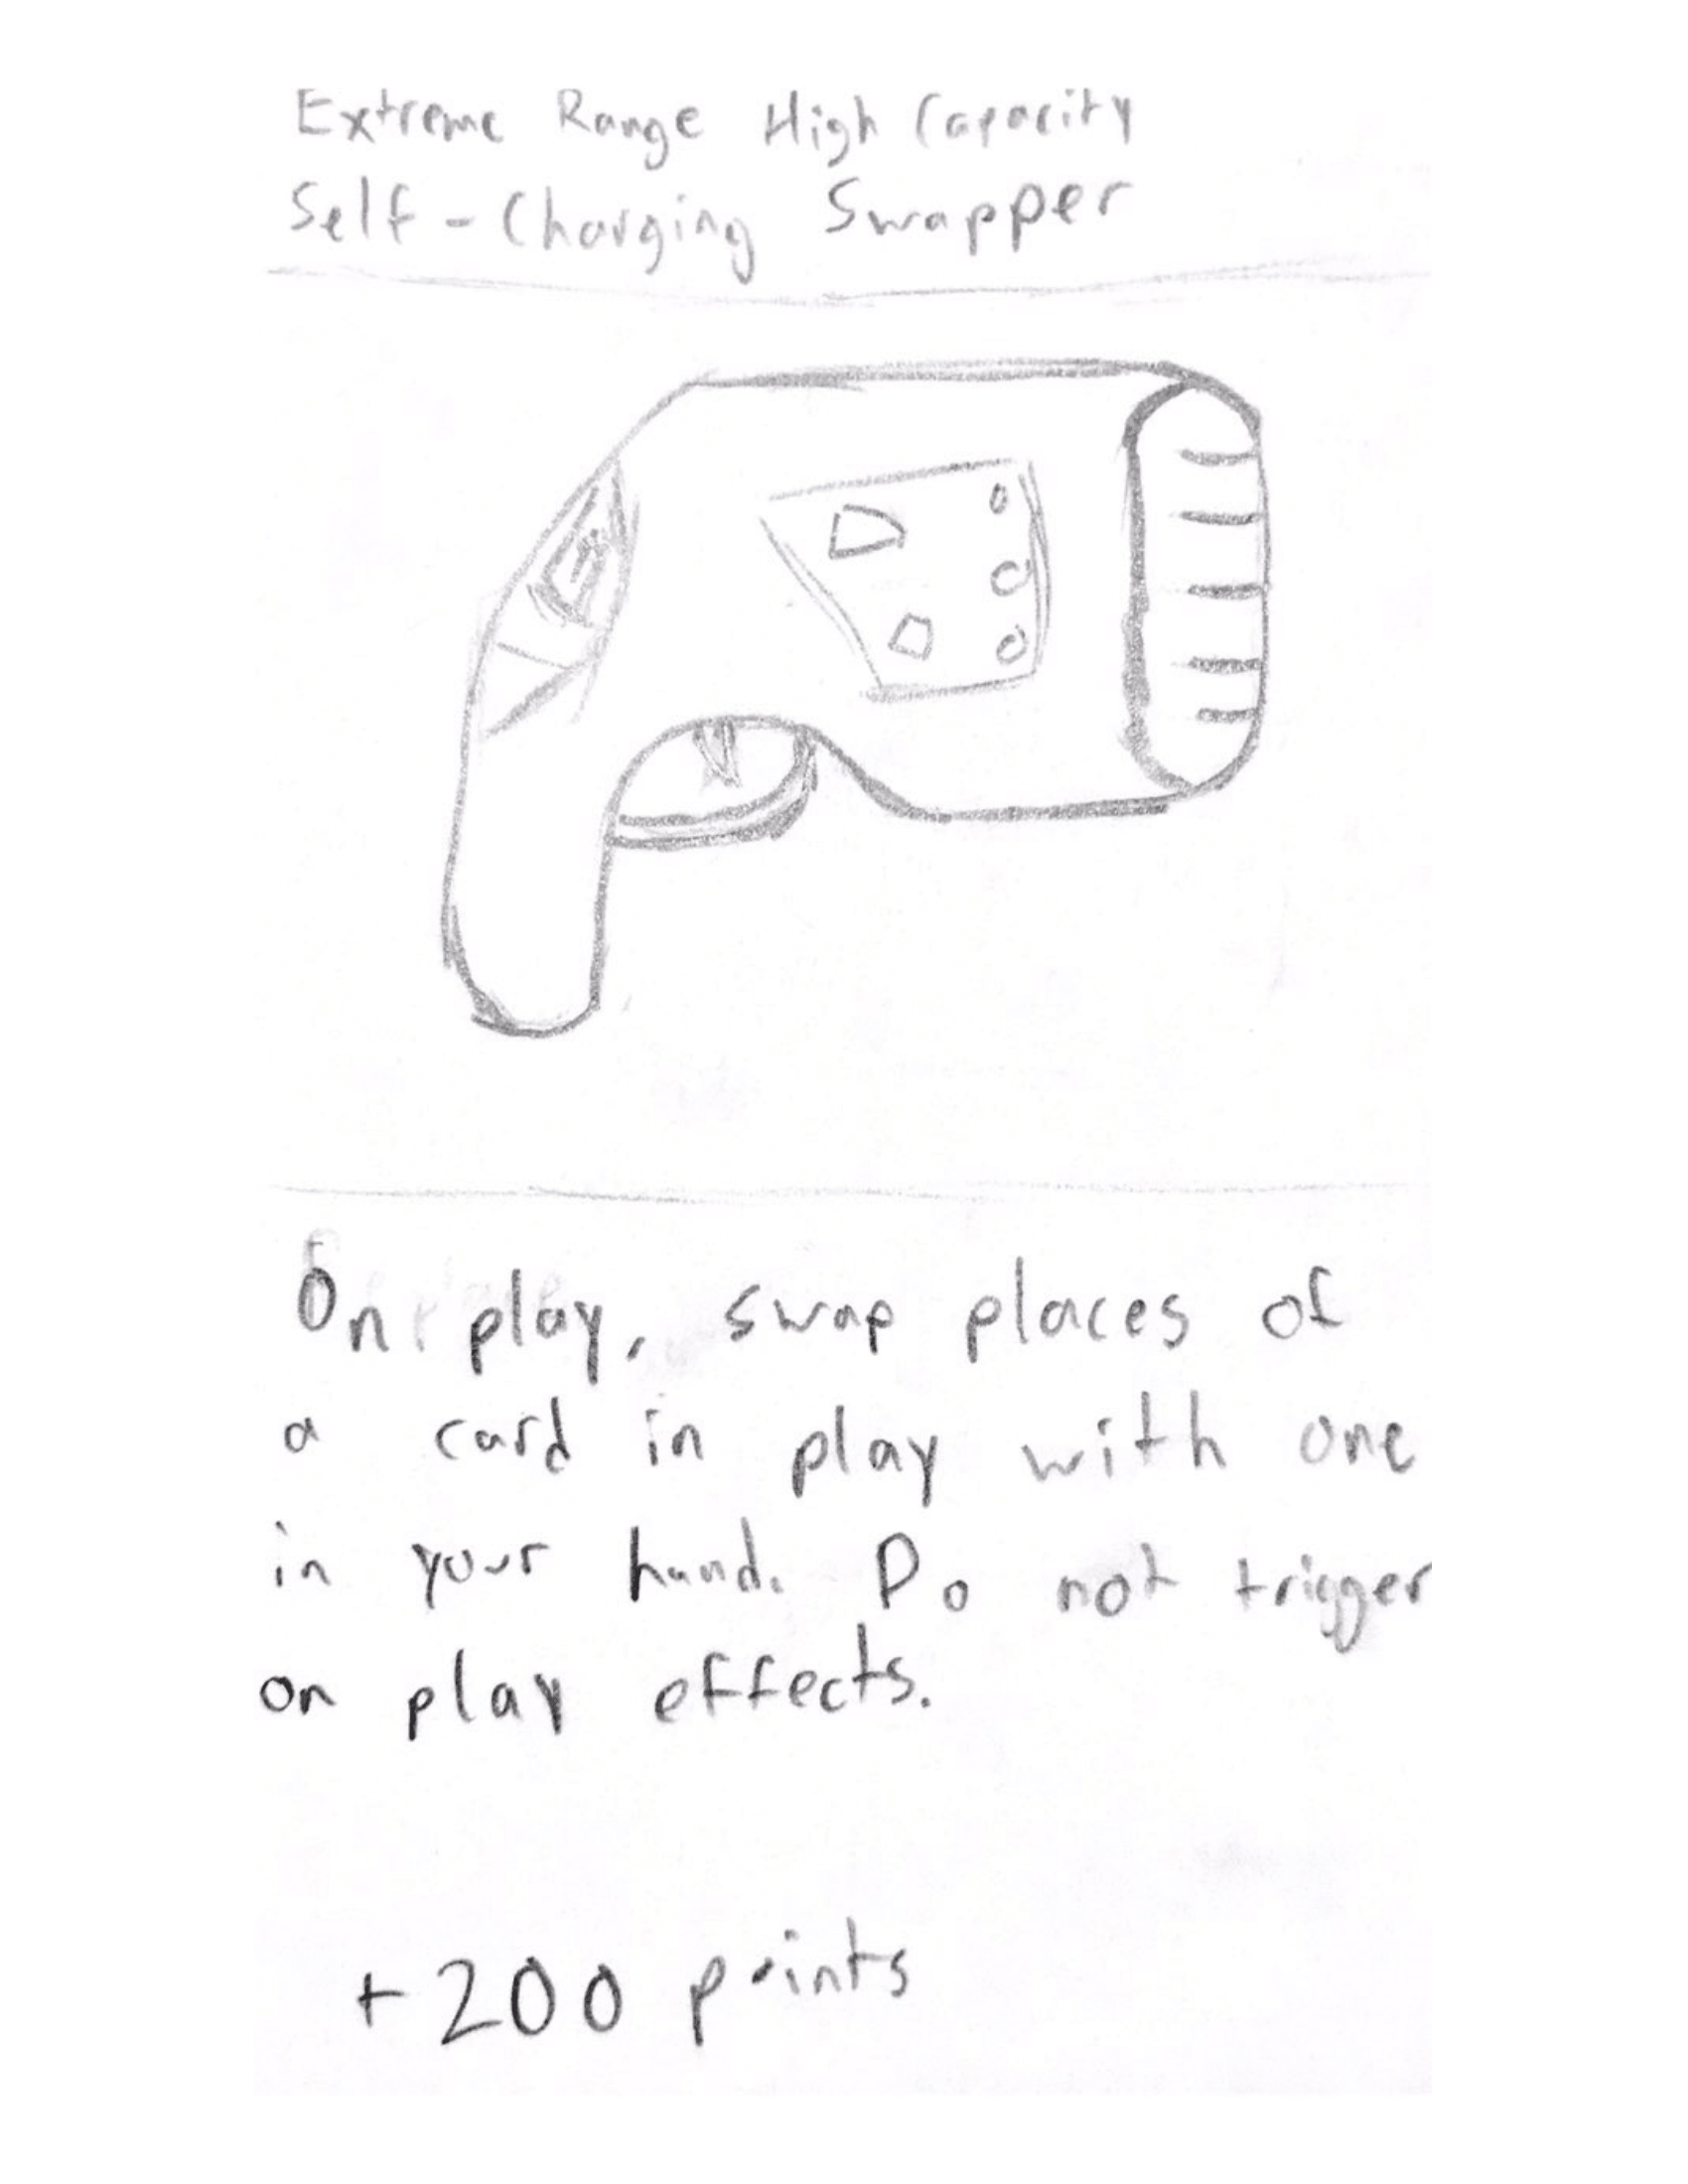 Extreme Range High Capacity
Self-Charging Swapper
On play, swap places of
a card in play with one
in your hand. Do not trigger
on play effects.
+200 points